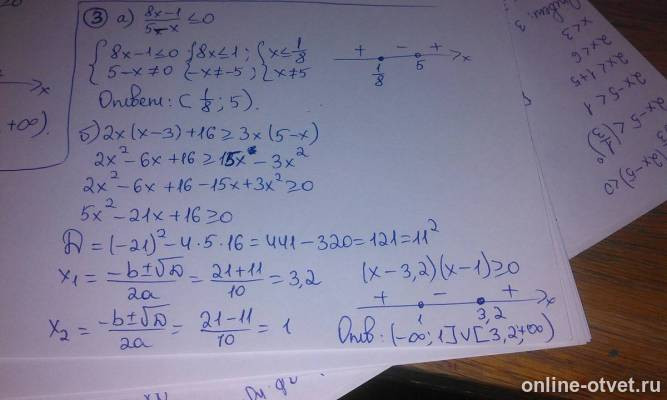 ③ а) (8x-1)/(5-x) ≤ 0
{ 8x-1≤0 { 8x≤1 ; { x≤1/8
{ 5-x≠0 { -x≠-5 ; { x≠5
+ - +
1/8 5 x
Ответ: ( 1/8 ; 5).
б) 2x(x-3)+16 ≥ 3x(5-x)
2x²-6x+16 ≥ 15x - 3x²
2x²-6x+16-15x+3x² ≥ 0
5x²-21x+16 ≥ 0
D = (-21)²-4·5·16 = 441-320 = 121 = 11²
x₁ = (-b±√D)/2a = (21+11)/10 = 3,2
(x-3,2)(x-1) ≥ 0
x₂ = (-b±√D)/2a = (21-11)/10 = 1
+ - +
1 3,2 x
Отв: (-∞; 1]∨[3,2;+∞)
x
+∞).
(2x-5)<0
2x-5 < (1/3)⁰
2x-5<1
2x<1+5
2x<6
x<3
online-otvet.ru